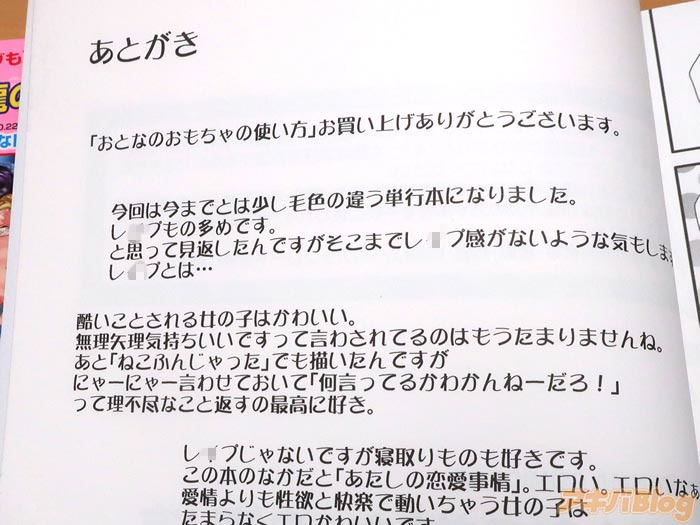 あとがき
「おとなのおもちゃの使い方」お買い上げありがとうございます。
今回は今までとは少し毛色の違う単行本になりました。
レ プもの多めです。
と思って見返したんですがそこまでレ プ感がないような気もします
レ プとは…
酷いことされる女の子はかわいい。
無理矢理気持ちいいですって言わされてるのはもうたまりませんね。
あと「ねこふんじゃった」でも描いたんですが
にゃーにゃー言わせておいて「何言ってるかわかんねーだろ！」
って理不尽なこと返すの最高に好き。
レイプじゃないですが寝取りものも好きです。
この本のなかだと「あたしの恋愛事情」。エロい。エロいなぁ
愛情よりも性欲と快楽で動いちゃう女の子は
たまらなくエロかわいいです
アキバBlog